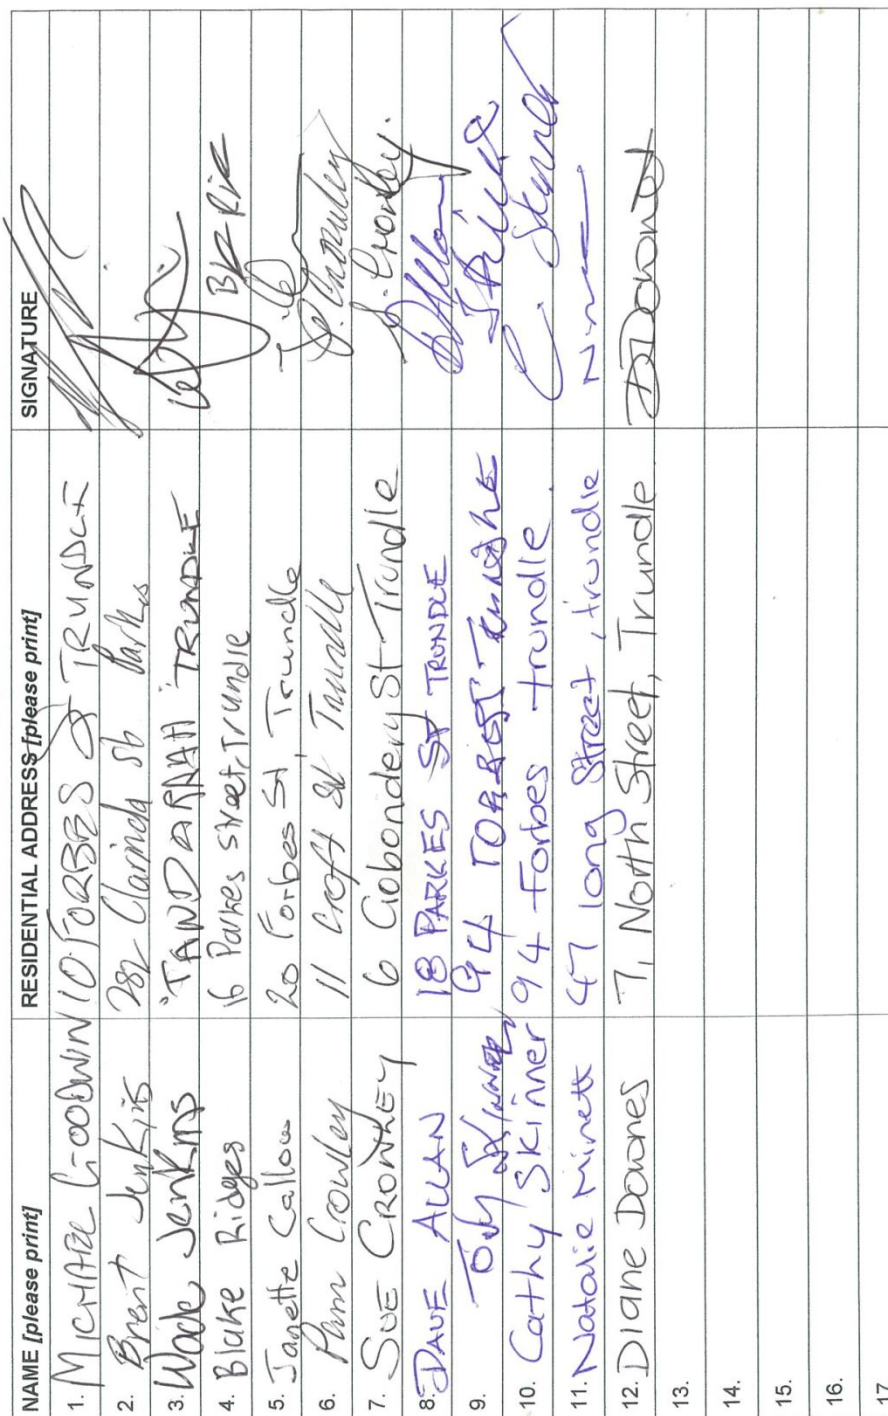 NAME [please print] RESIDENTIAL ADDRESS [please print] SIGNATURE
1. MICHAEL GOODWIN 10 FORBES ST TRUNDLE
2. Brent Jenkins 282 Clarinda St Parkes
3. Wade Jenkins "TANDARRAH" TRUNDLE
4. Blake Ridges 16 Parkes Street, Trundle
5. Janette Callow 20 Forbes St, Trundle
6. Pam Crowley 11 Croft St Trundle P. Crowley
7. SUE CROWLEY 6 Gobondery St Trundle S. Crowley.
8. DAVE ALLAN 18 PARKES ST TRUNDLE DAllan
9. Tony Skinner 94 FORBES T Trundle
10. Cathy Skinner 94 Forbes trundle. C. Skinner
11. Natalie Minett 47 long Street, trundle
12. Diane Downes 7, North Street, Trundle DDownes
13.
14.
15.
16.
17